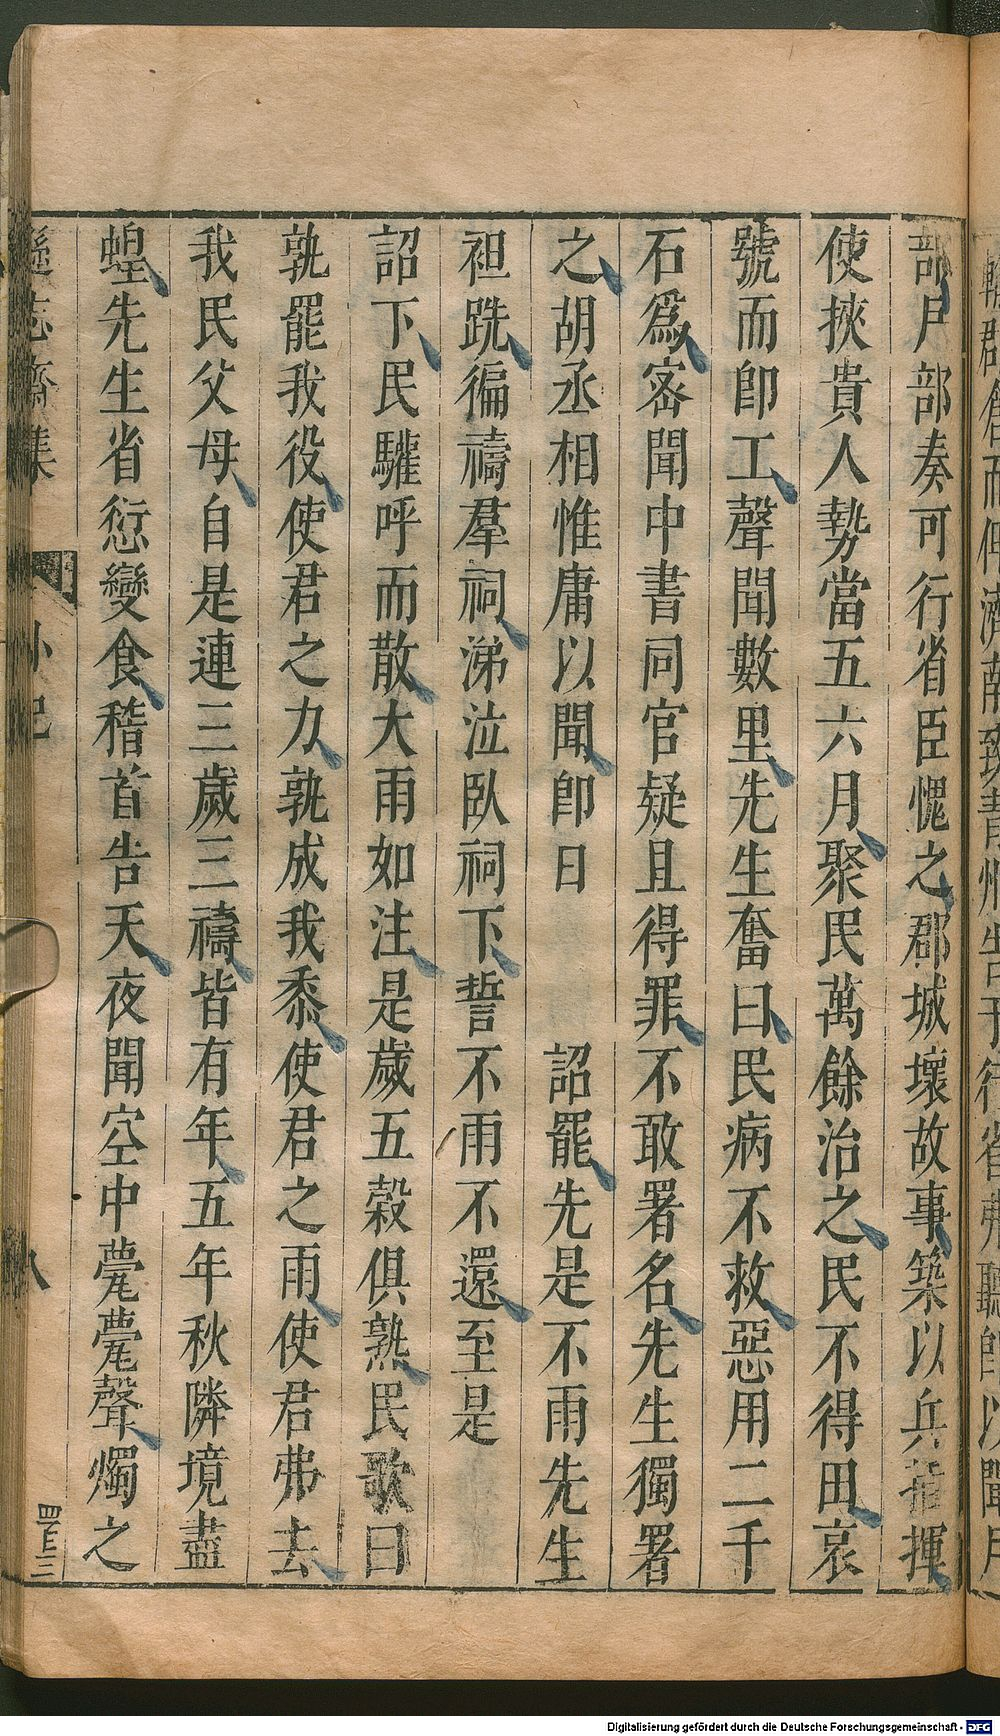 部戶部奏可行省臣愧之郡城壞故事築以兵揮
使挾貴人勢當五六月聚民萬餘治之民不得田哀
號而卽工聲聞數里先生奮曰民病不救惡用二千
石爲密聞中書同官疑且得罪不敢署名先生獨署
之胡丞相惟庸以聞卽日　詔罷先是不雨先生
袒跣徧禱羣祠涕泣臥祠下誓不雨不還至是
詔下民驩呼而散大雨如注是歲五穀俱熟民歌曰
孰罷我役使君之力孰成我黍使君之雨使君弗去
我民父母自是連三歲三禱皆有年五年秋隣境盡
蝗先生省愆變食稽首告天夜聞空中薨薨聲燭之
遜志齋集
八
Digitalisierung gefördert durch die Deutsche Forschungsgemeinschaft - DFG